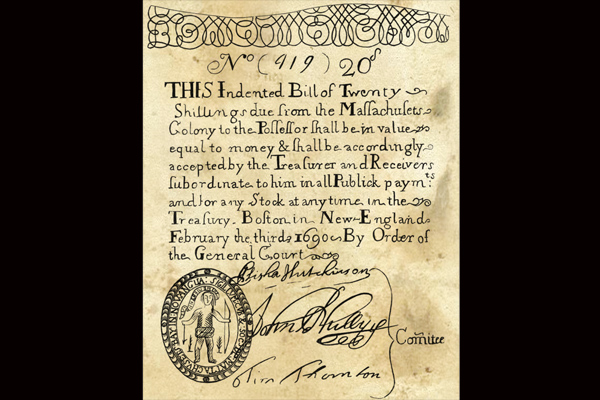 No (919) 20s
THIS Indented Bill of Twenty
Shillings due from the Massachusets
Colony to the Possessor shall be in value
equal to money & shall be accordingly
accepted by the Treasurer and Receivers
subordinate to him in all Publick paymts
and for any Stock at any time in the
Treasury. Boston in New-England
February the third 1690 By Order of
the General Court
Elisha Hutchinson
Tim Thornton
Comittee